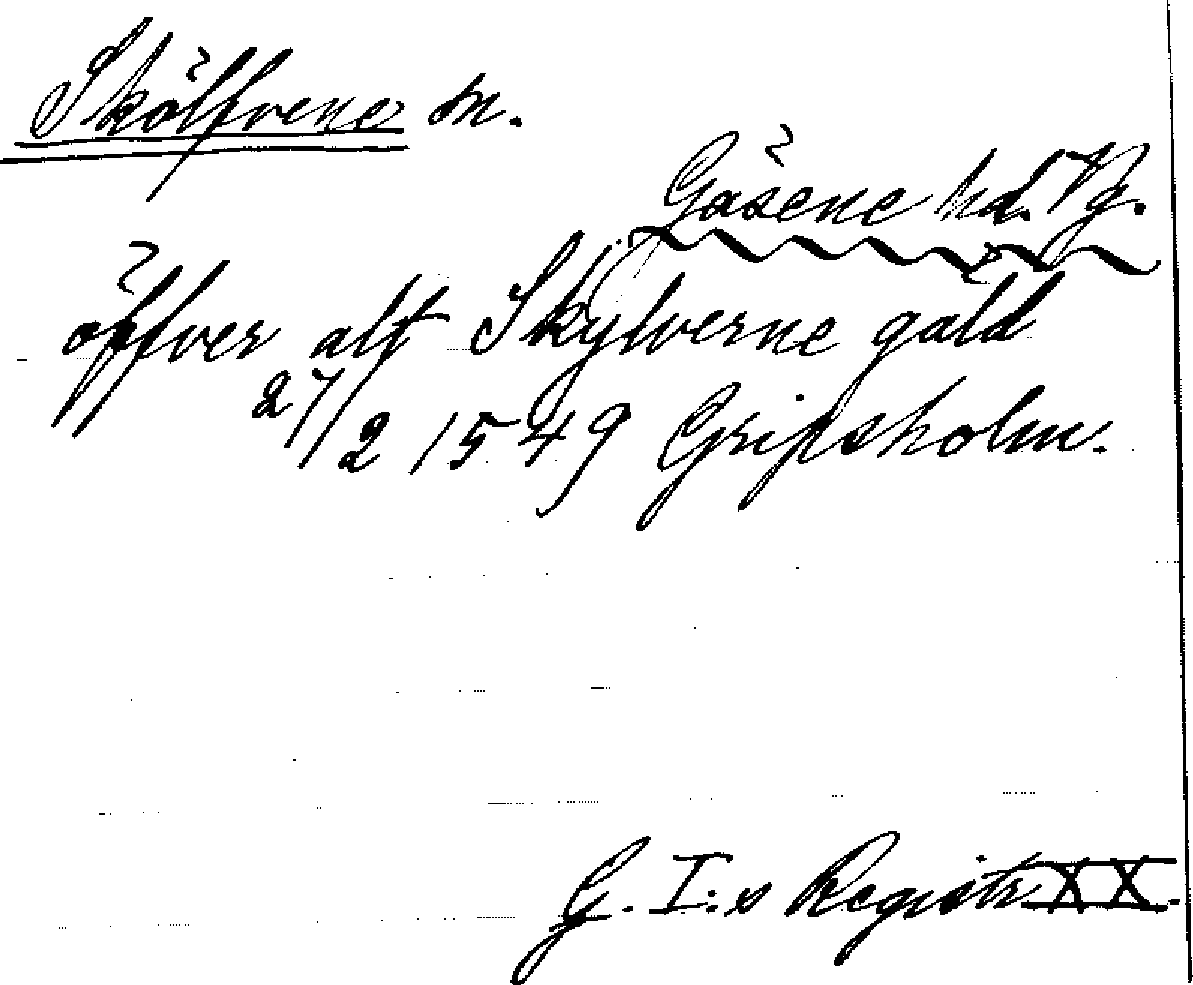 Skölfvene sn.
Gäsene hd. Vg.
öffver alt Skÿlverne gäld
27/2 1549 Gripsholm.
G. I:s Registr XX.